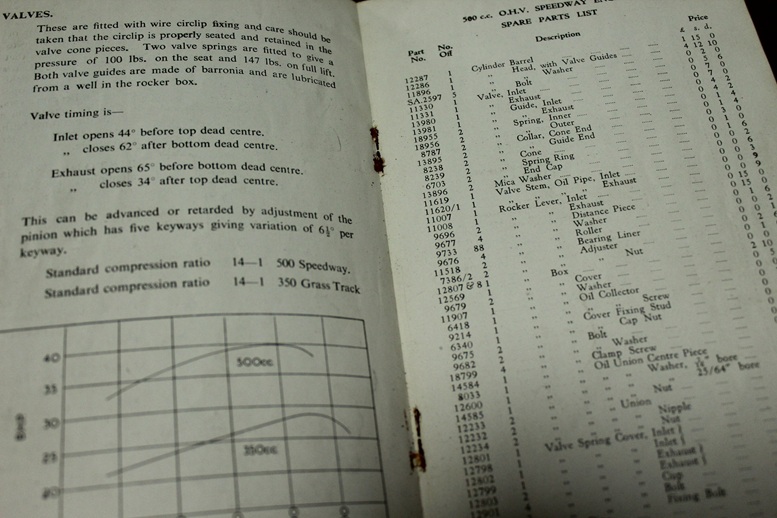 VALVES.
These are fitted with wire circlip fixing and care should be
taken that the circlip is properly seated and retained in the
valve cone pieces. Two valve springs are fitted to give a
pressure of 100 lbs. on the seat and 147 lbs. on full lift.
Both valve guides are made of barronia and are lubricated
from a well in the rocker box.
Valve timing is—
Inlet opens 44° before top dead centre.
„ closes 62° after bottom dead centre.
Exhaust opens 65° before bottom dead centre.
„ closes 34° after top dead centre.
This can be advanced or retarded by adjustment of the
pinion which has five keyways giving variation of 6½° per
keyway.
Standard compression ratio 14—1 500 Speedway.
Standard compression ratio 14—1 350 Grass Track
40
35
30
25
20
500cc
350cc
500 c.c. O.H.V. SPEEDWAY
SPARE PARTS LIST
Part No. No. Off Description Price £ s. d.
12287 1 Cylinder Barrel
12286 1 „ Head, with Valve Guides
11896 1 „ „ Washer
SA.2597 5 „ Bolt
11330 1 Valve, Inlet
11331 1 „ Exhaust
13980 1 „ Guide, Inlet
13981 1 „ „ Exhaust
18955 2 „ Spring, Inner
18956 2 „ „ Outer
8787 2 „ Collar, Cone End
13895 2 „ „ Guide End
8238 2 „ Cone
8239 2 „ Spring Ring
6703 2 „ End Cap
13896 2 Mica Washer
11619 1 Valve Stem, Oil Pipe, Inlet
11620/1 1 „ „ „ Exhaust
11007 1 Rocker Lever, Inlet
11008 1 „ „ Exhaust
9696 2 „ „ Distance Piece
9677 4 „ „ Washer
9733 88 „ „ Roller
9676 4 „ „ Bearing Liner
11518 2 „ „ Adjuster
7386/2 2 „ „ „ Nut
12807 & 8 1 „ Box
12569 1 „ „ Cover
9679 2 „ „ Washer
11907 1 „ „ Oil Collector
6418 1 „ „ „ Screw
9214 1 „ „ Cover Fixing Stud
6340 1 „ „ „ Cap Nut
9675 2 „ „ Bolt
9682 2 „ „ „ Washer
18799 4 „ „ Clamp Screw
14584 1 „ „ Oil Union Centre Piece
8033 1 „ „ „ Washer, bore
12600 1 „ „ „ 25/64" bore
14585 1 „ „ „ Nut
12233 2 „ „ Union
12232 2 „ „ „ Nipple
12234 2 „ „ „ Nut
12801 1 Valve Spring Cover, Inlet
12798 1 „ „ „ Inlet
12802 1 „ „ „ Exhaust
12799 1 „ „ „ Exhaust
12803 2 „ „ „ Cap
12901 4 „ „ „ Bolt
Fixing Bolt